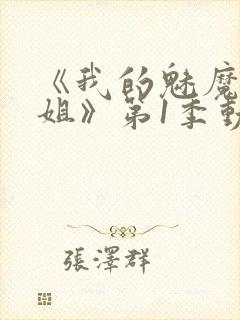 《我的魅魔
姐》第1季動
張澤群